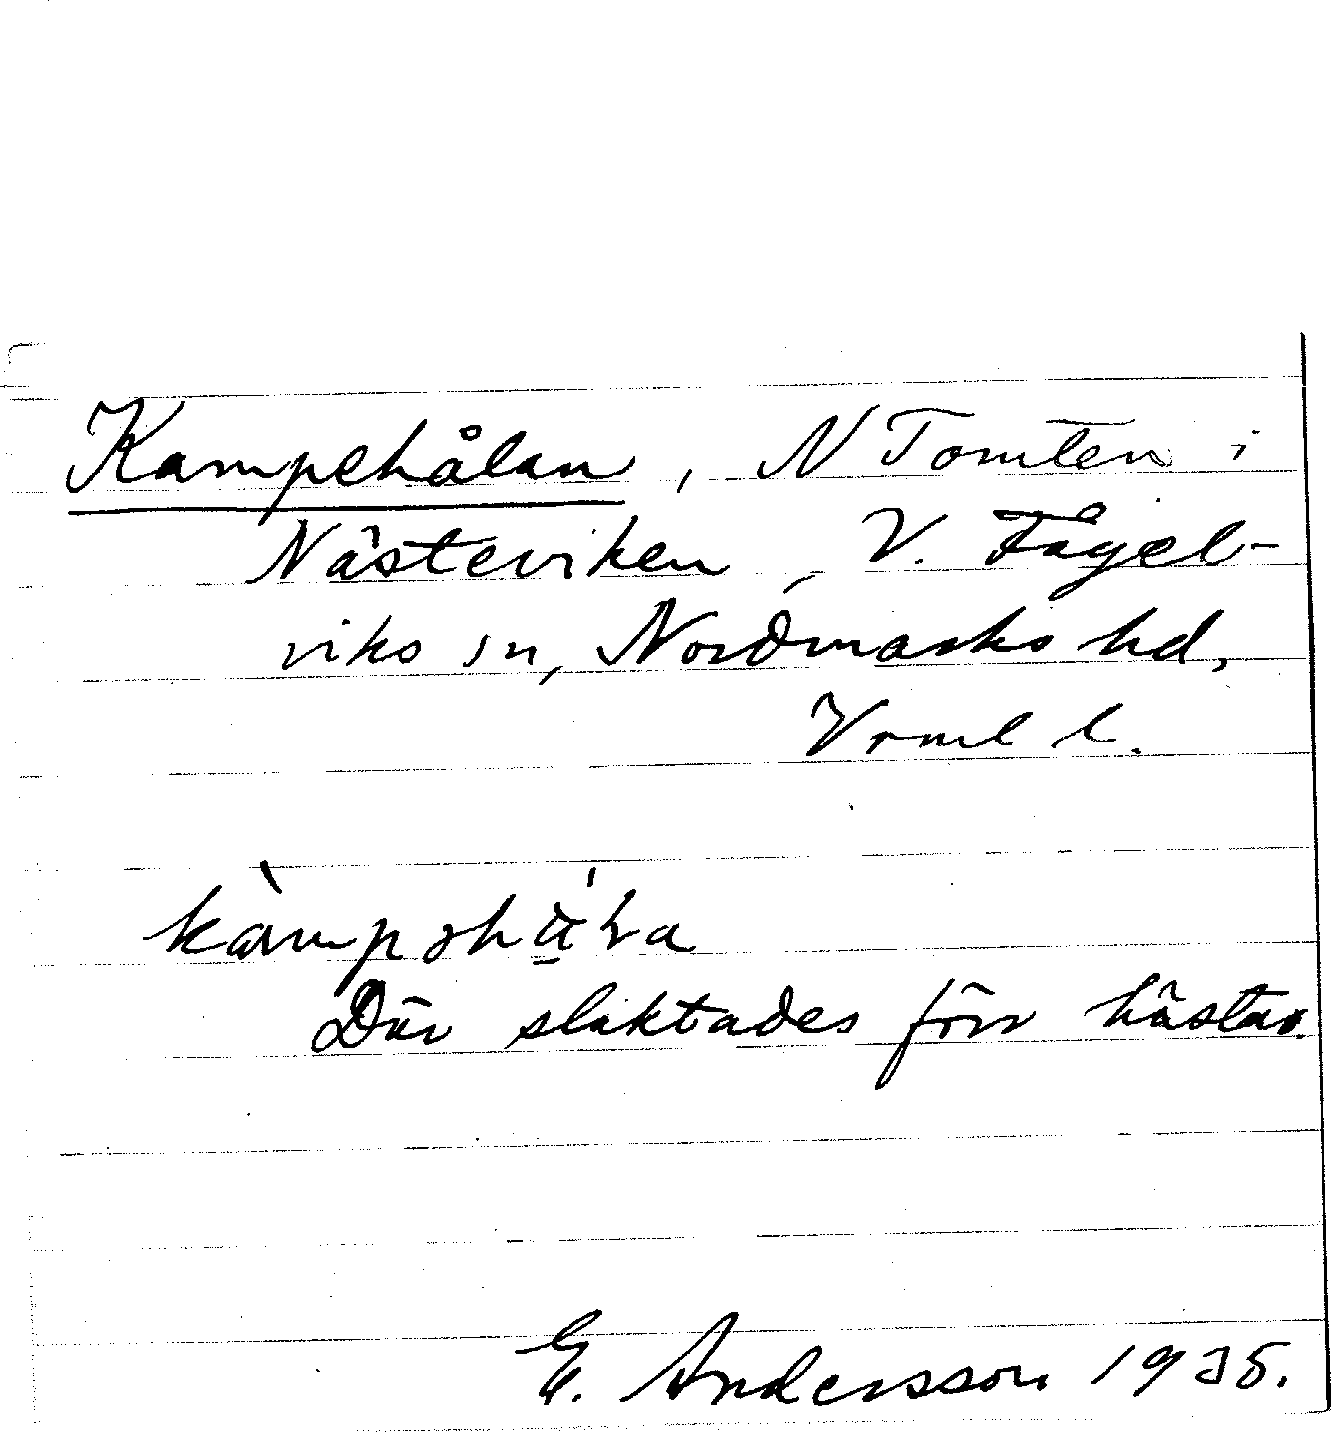 Kampehålan, N Tomten i
Nästeviken, V. Fågel-
viks sn, Nordmarks hd,
Vrml l.
Där slaktades förr hästar.
E. Andersson 1935.